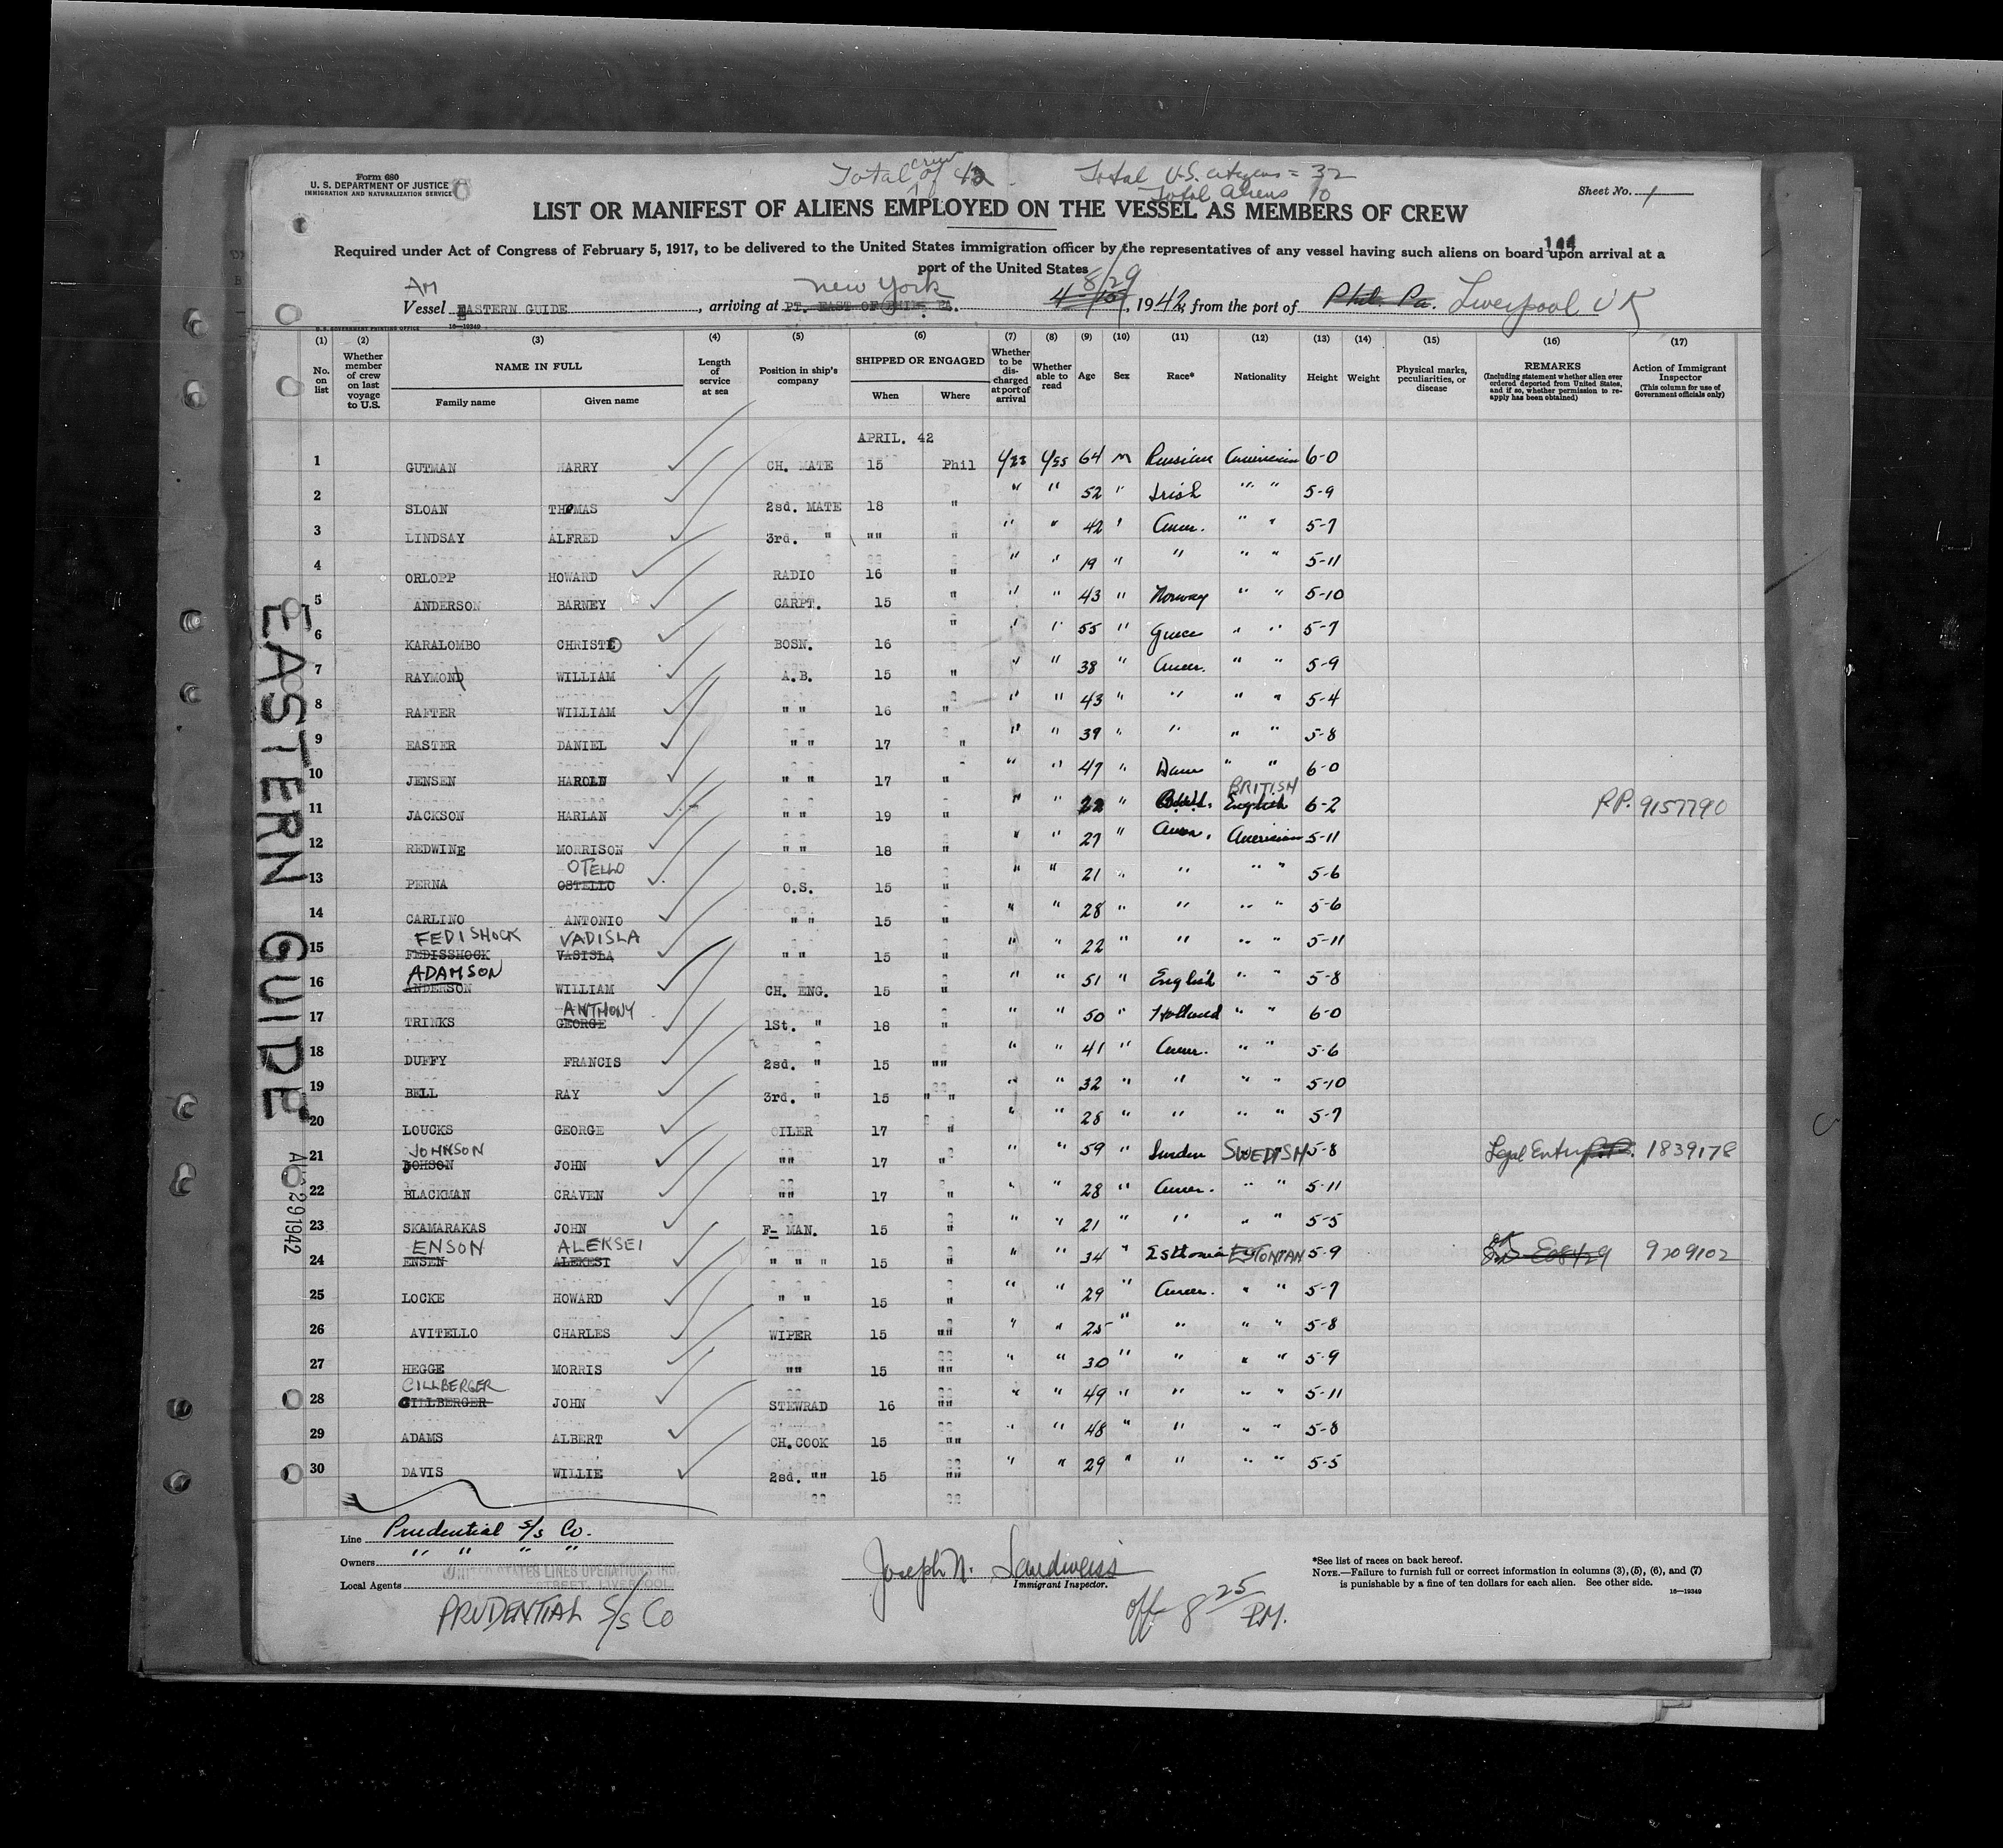 Total crew of 42
Total U.S. citizens = 32
Total aliens 10
Form 680
U. S. DEPARTMENT OF JUSTICE
IMMIGRATION AND NATURALIZATION SERVICE
Sheet No. 1
LIST OR MANIFEST OF ALIENS EMPLOYED ON THE VESSEL AS MEMBERS OF CREW
Required under Act of Congress of February 5, 1917, to be delivered to the United States immigration officer by the representatives of any vessel having such aliens on board upon arrival at a
port of the United States
144
AM New York 8/29
Vessel EASTERN GUIDE, arriving at PT. EAST OF PHIL. PA. 4-, 1942, from the port of Phil. Pa. Liverpool UK
U. S. GOVERNMENT PRINTING OFFICE 16—19349
(1) No. on list
(2) Whether member of crew on last voyage to U.S.
(3) NAME IN FULL Family name Given name
(4) Length of service at sea
(5) Position in ship's company
(6) SHIPPED OR ENGAGED When Where
(7) Whether to be discharged at port of arrival
(8) Whether able to read
(9) Age
(10) Sex
(11) Race*
(12) Nationality
(13) Height
(14) Weight
(15) Physical marks, peculiarities, or disease
(16) REMARKS (Including statement whether alien ever ordered deported from United States, and if so, whether permission to reapply has been obtained)
(17) Action of Immigrant Inspector (This column for use of Government officials only)
APRIL. 42
1 GUTMAN HARRY CH. MATE 15 Phil yes yes 64 m Russian American 6-0
2 SLOAN THOMAS 2sd. MATE 18 " " " 52 " Irish " " 5-9
3 LINDSAY ALFRED 3rd. " "" " " " 42 " Amer. " " 5-7
4 ORLOPP HOWARD RADIO 16 " " " 19 " " " " 5-11
5 ANDERSON BARNEY CARPT. 15 " " " 43 " Norway " " 5-10
6 KARALOMBO CHRISTO BOSN. 16 " " " 55 " Greece " " 5-7
7 RAYMOND WILLIAM A.B. 15 " " " 38 " Amer. " " 5-9
8 RAFTER WILLIAM " " 16 " " " 43 " " " " 5-4
9 EASTER DANIEL " " 17 " " " 39 " " " " 5-8
10 JENSEN HAROLD " " 17 " " " 47 " Dane " " 6-0
BRITISH
11 JACKSON HARLAN " " 19 " " " 22 " English 6-2 RP. 9157790
12 REDWINE MORRISON " " 18 " " " 27 " Amer. American 5-11
OTELLO
13 PERNA OSTELLO O.S. 15 " " " 21 " " " " 5-6
14 CARLINO ANTONIO " " 15 " " " 28 " " " " 5-6
FEDISHOCK VADISLA
15 FEDISSHOCK VASISLA " " 15 " " " 22 " " " " 5-11
ADAMSON
16 ANDERSON WILLIAM CH. ENG. 15 " " " 51 " English " " 5-8
ANTHONY
17 TRINKS GEORGE 1St. " 18 " " " 50 " Holland " " 6-0
18 DUFFY FRANCIS 2sd. " 15 "" " " 41 " Amer. " " 5-6
19 BELL RAY 3rd. " 15 " " " " 32 " " " " 5-10
20 LOUCKS GEORGE OILER 17 " " " 28 " " " " 5-7
JOHNSON
21 JOHSON JOHN "" 17 " " " 59 " Sweden SWEDISH 5-8 Legal Entry 1839178
22 BLACKMAN CRAVEN "" 17 " " " 28 " Amer. " " 5-11
23 SKAMARAKAS JOHN F- MAN. 15 " " " 21 " " " " 5-5
ENSON ALEKSEI
24 ENSEN ALEKEST " " " 15 " " " 34 " Esthonia ESTONIAN 5-9 9209102
25 LOCKE HOWARD " " 15 " " " 29 " Amer. " " 5-7
26 AVITELLO CHARLES WIPER 15 "" " " 25 " " " " 5-8
27 HEGGE MORRIS "" 15 "" " " 30 " " " " 5-9
CILLBERGER
28 GILLBERGER JOHN STEWRAD 16 "" " " 49 " " " " 5-11
29 ADAMS ALBERT CH. COOK 15 "" " " 48 " " " " 5-8
30 DAVIS WILLIE 2sd. "" 15 "" " " 29 " " " " 5-5
EASTERN GUIDE
AUG 29 1942
Line Prudential S/S Co.
Owners " " " "
Local Agents UNITED STATES LINES OPERATIONS INC.
STREET, LIVERPOOL
PRUDENTIAL S/S Co
Joseph N. Landweiss
Immigrant Inspector.
off 8 25 P.M.
*See list of races on back hereof.
NOTE.—Failure to furnish full or correct information in columns (3), (5), (6), and (7)
is punishable by a fine of ten dollars for each alien. See other side.
16—19349